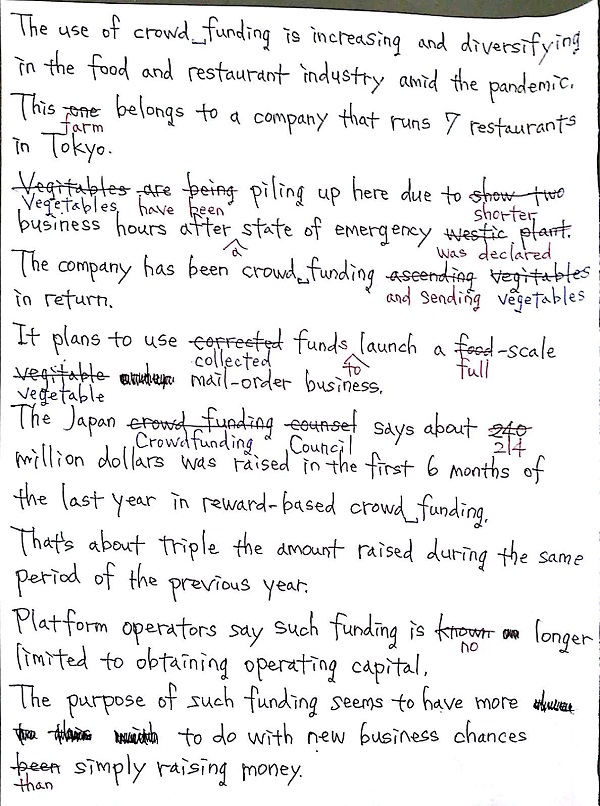 The use of crowd funding is increasing and diversifying
in the food and restaurant industry amid the pandemic.
This one belongs to a company that runs 7 restaurants
farm
in Tokyo.
Vegitables are being piling up here due to show two
Vegetables have been shorter
business hours after state of emergency westic plant.
a was declared
The company has been crowd funding ascending vegitables
and sending vegetables
in return.
It plans to use corrected funds launch a food-scale
collected to full
vegitable mail-order business.
vegetable
The Japan crowd funding counsel says about 240
Crowdfunding Council 214
million dollars was raised in the first 6 months of
the last year in reward-based crowd funding.
That's about triple the amount raised during the same
period of the previous year.
Platform operators say such funding is known longer
no
limited to obtaining operating capital.
The purpose of such funding seems to have more
to do with new business chances
been simply raising money.
than